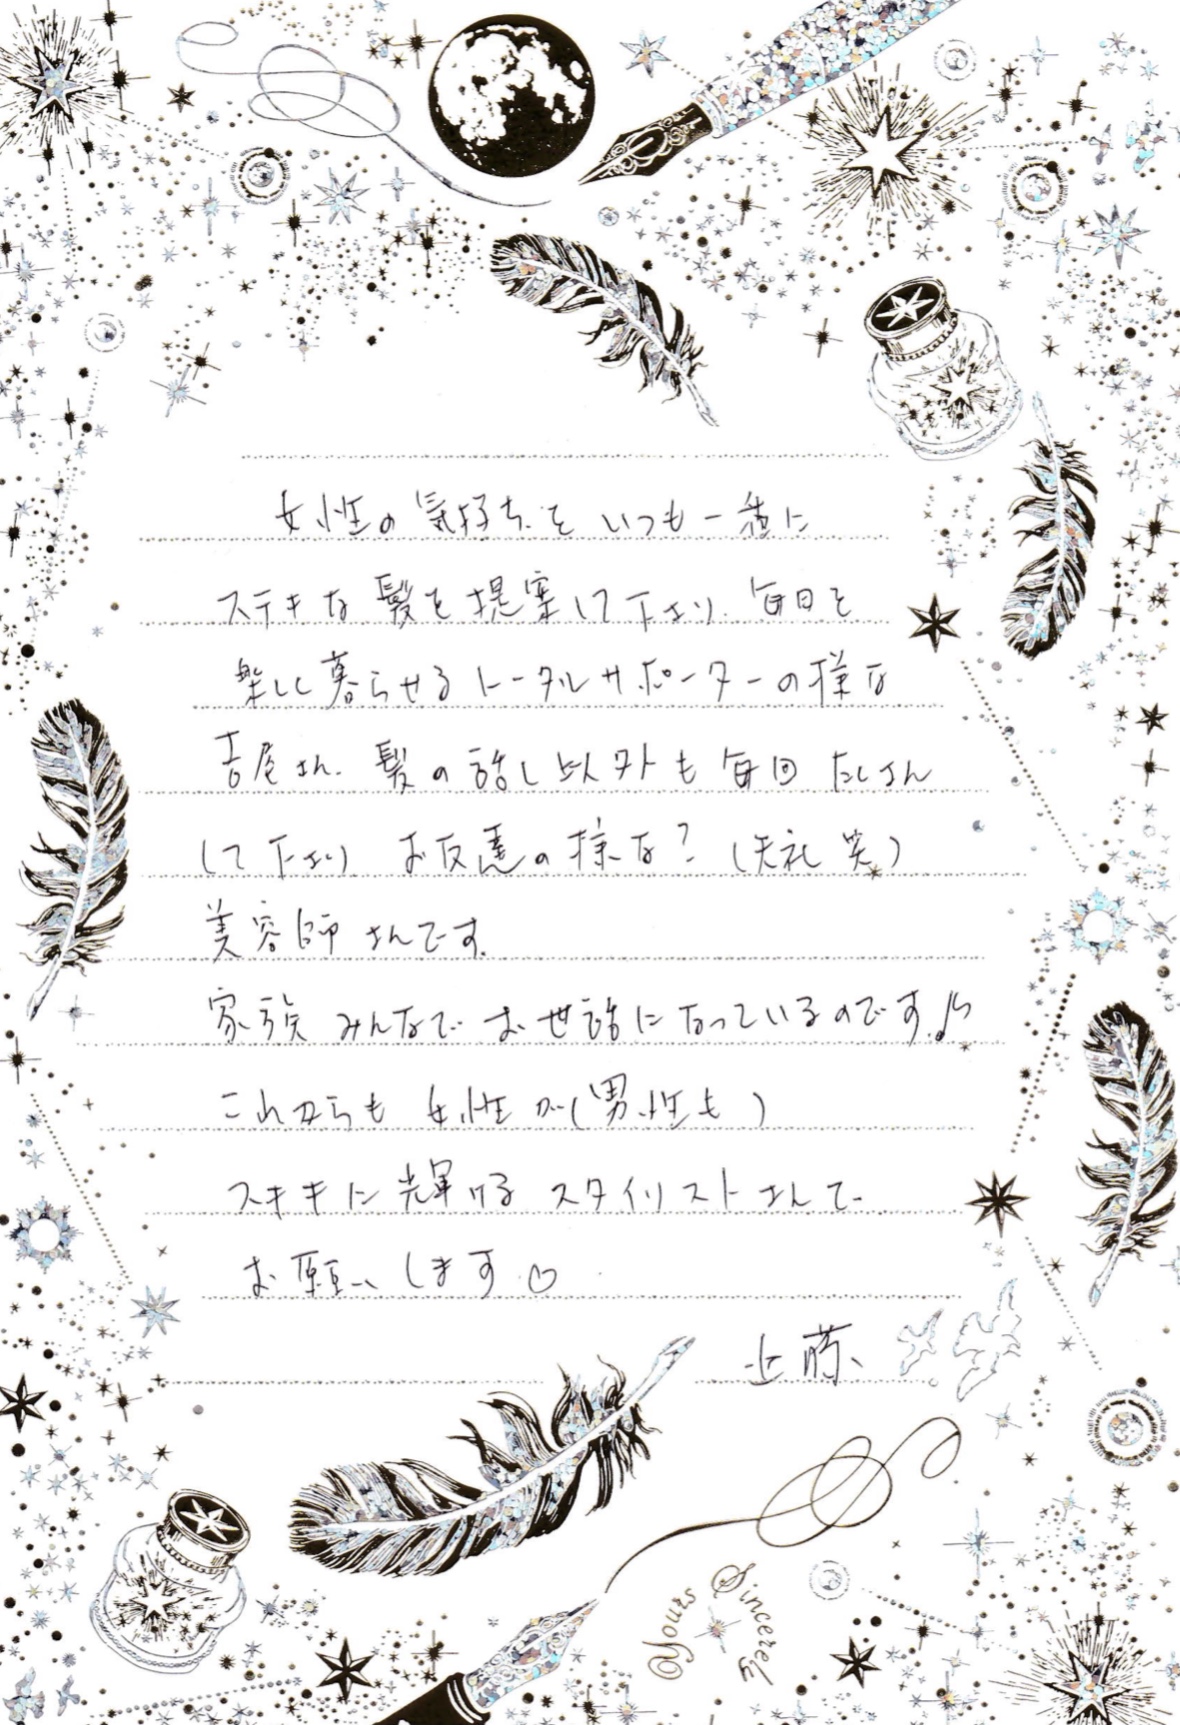 女性の気持ちを いつも一緒に
ステキな髪を提案して下さり、毎日を
楽しく暮らせるトータルサポーターの様な
吉尾さん。髪の話し以外も毎回たくさん
して下さり お友達の様な?(失礼 笑)
美容師さんです。
家族みんなで お世話になっているのです♪
これからも 女性が(男性も)
ステキに輝ける スタイリストさんで
お願いします♡
近藤
Yours Sincerely